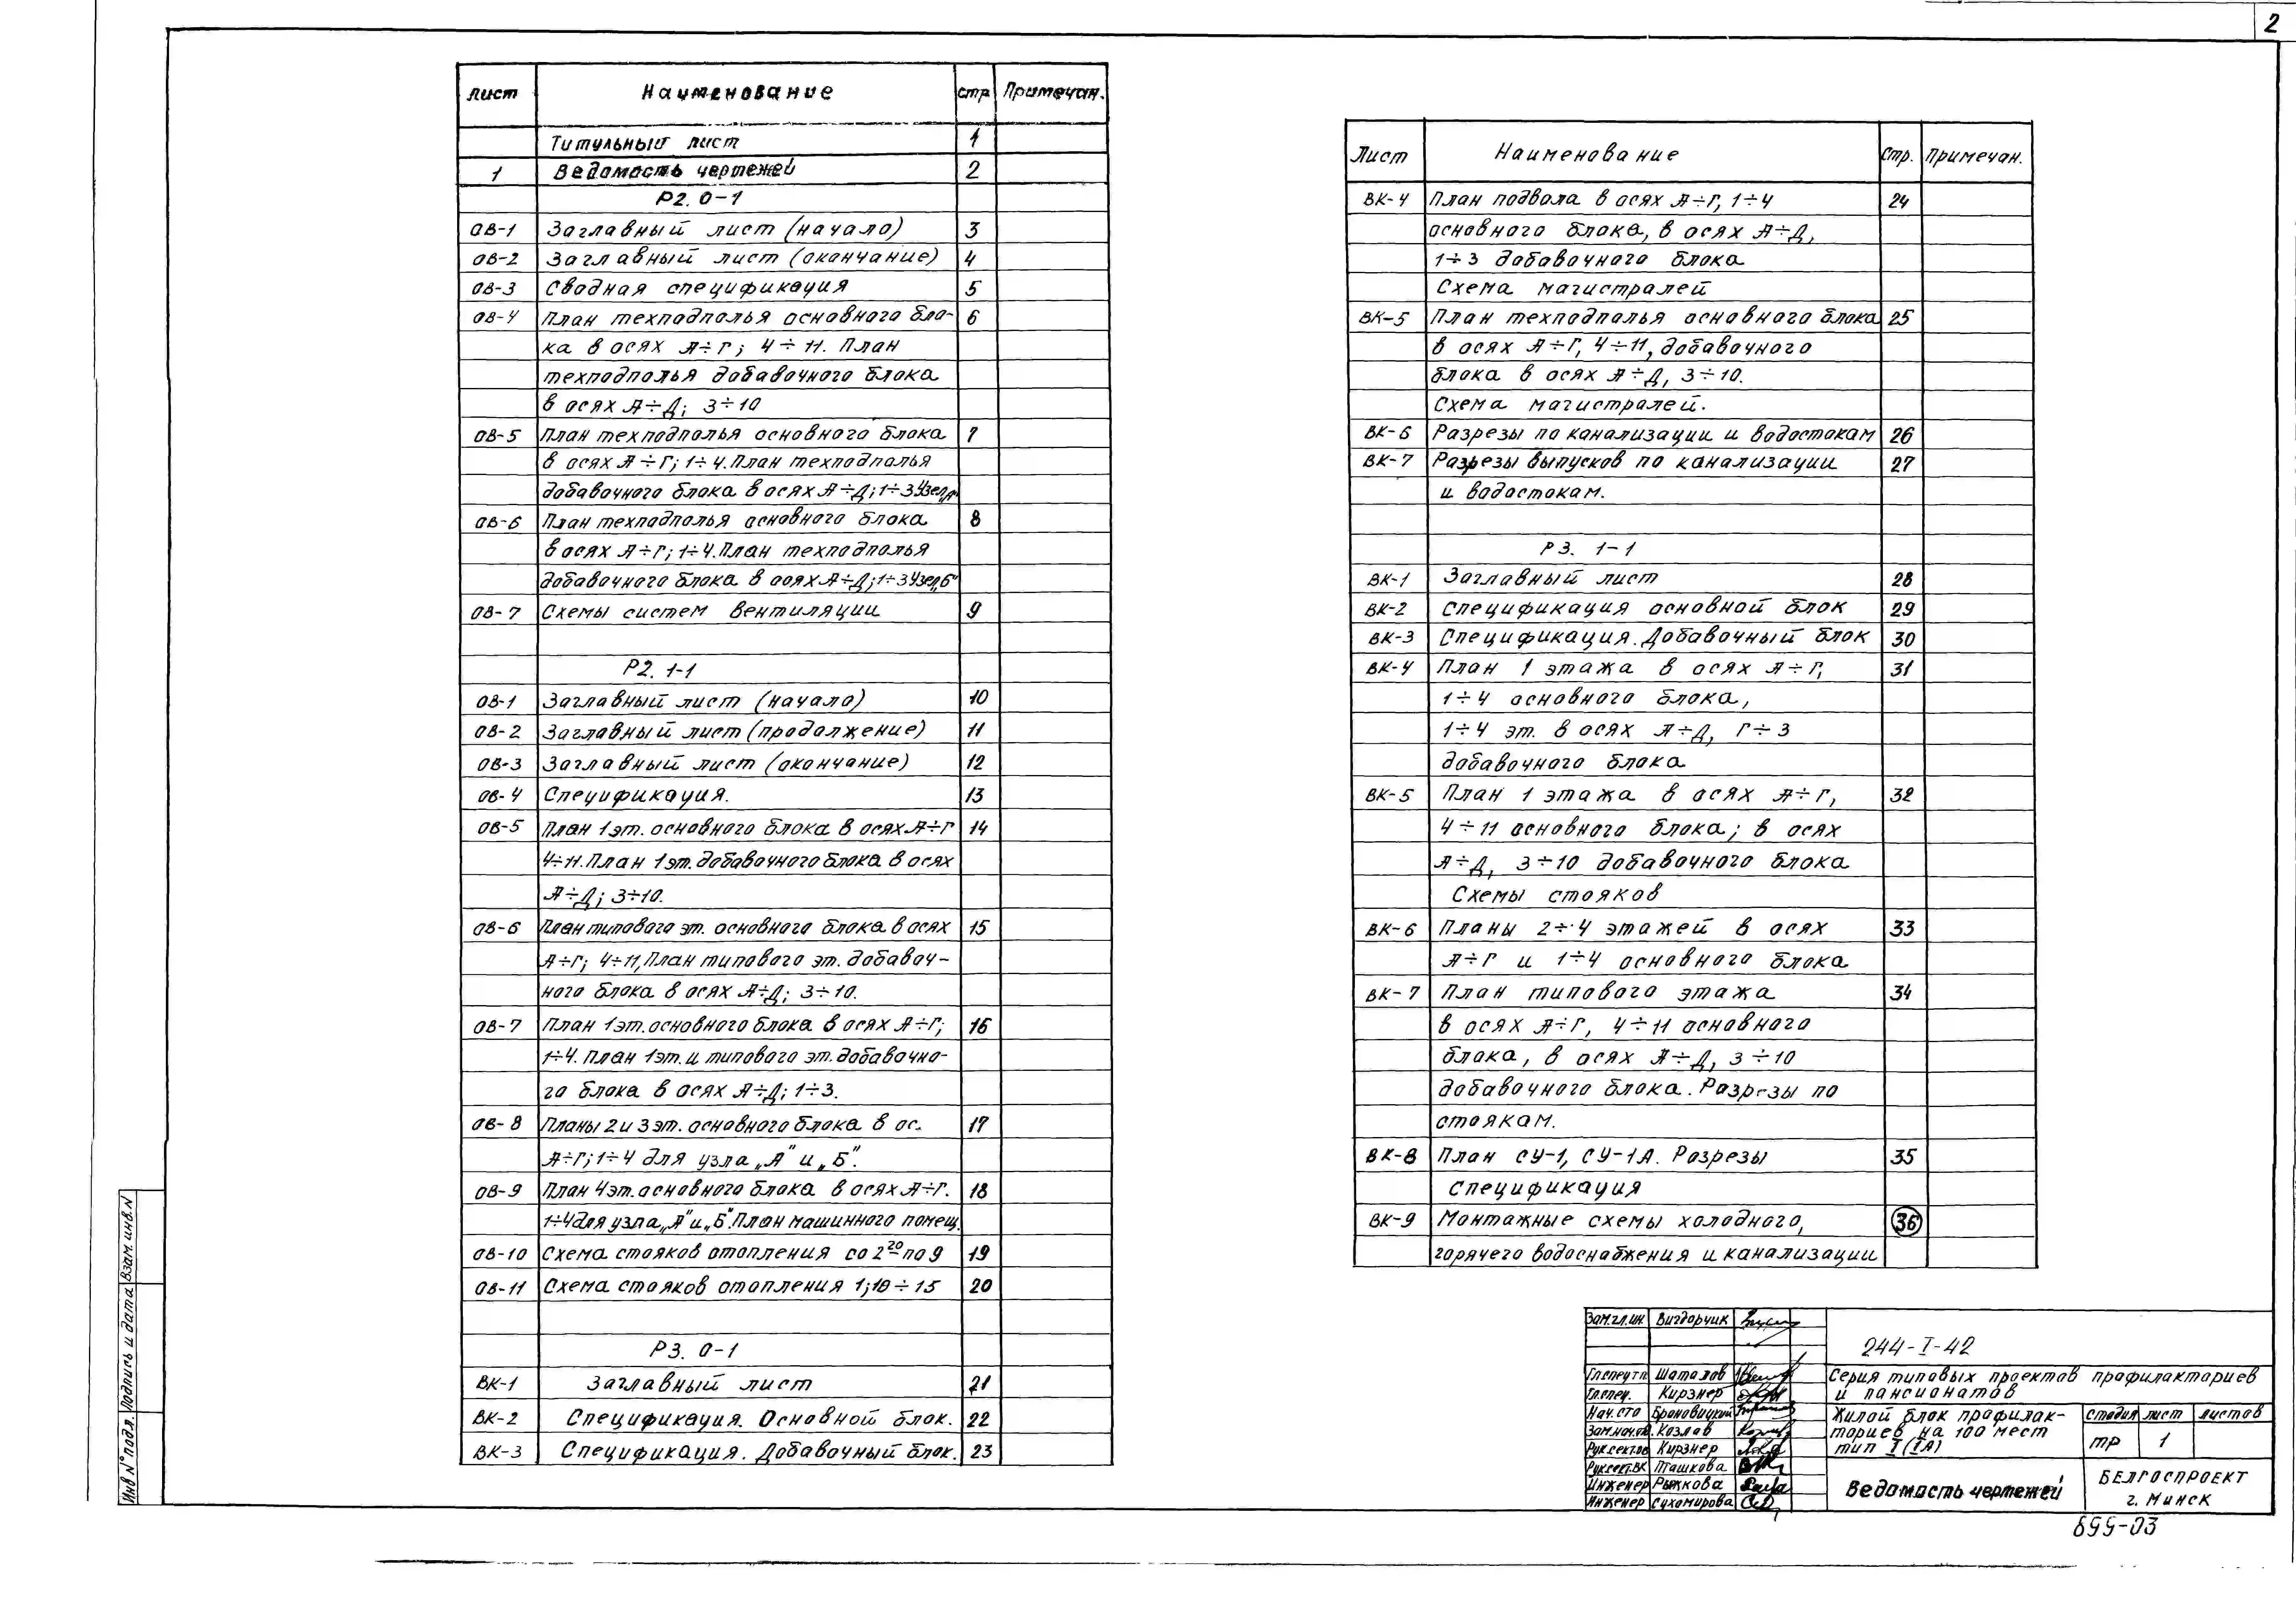 2
Лист Наименование стр Примечан.
Титульный лист 1
1 Ведомость чертежей 2
Р2. 0-1
ОВ-1 Заглавный лист (начало) 3
ОВ-2 Заглавный лист (окончание) 4
ОВ-3 Сводная спецификация 5
ОВ-4 План техподполья основного бло- 6
ка в осях А÷Г; 4÷11. План
техподполья добавочного блока
в осях А÷Д; 3÷10
ОВ-5 План техподполья основного блока 7
в осях А÷Г; 1÷4. План техподполья
добавочного блока в осях А÷Д; 1÷3 Узел „А"
ОВ-6 План техподполья основного блока 8
в осях А÷Г; 1÷4. План техподполья
добавочного блока в осях А÷Д; 1÷3 Узел „Б"
ОВ-7 Схемы систем вентиляции 9
Р2. 1-1
ОВ-1 Заглавный лист (начало) 10
ОВ-2 Заглавный лист (продолжение) 11
ОВ-3 Заглавный лист (окончание) 12
ОВ-4 Спецификация. 13
ОВ-5 План 1 эт. основного блока в осях А÷Г 14
4÷11. План 1 эт. добавочного блока в осях
А÷Д; 3÷10.
ОВ-6 План типового эт. основного блока в осях 15
А÷Г; 4÷11, План типового эт. добавоч-
ного блока в осях А÷Д; 3÷10.
ОВ-7 План 1 эт. основного блока в осях А÷Г; 16
1÷4. План 1 эт. и типового эт. добавочно-
го блока в осях А÷Д; 1÷3.
ОВ-8 Планы 2 и 3 эт. основного блока в ос. 17
А÷Г; 1÷4 для узла „А" и „Б".
ОВ-9 План 4 эт. основного блока в осях А÷Г. 18
1÷4 для узла „А" и „Б". План машинного помещ.
ОВ-10 Схема стояков отопления со 2го по 9 19
ОВ-11 Схема стояков отопления 1; 10÷15 20
Р3. 0-1
ВК-1 Заглавный лист 21
ВК-2 Спецификация. Основной блок. 22
ВК-3 Спецификация. Добавочный блок. 23
Лист Наименование Стр. Примечан.
ВК-4 План подвала в осях А÷Г, 1÷4 24
основного блока, в осях А÷Д,
1÷3 добавочного блока
Схема магистралей
ВК-5 План техподполья основного блока 25
в осях А÷Г, 4÷11, добавочного
блока в осях А÷Д, 3÷10.
Схема магистралей.
ВК-6 Разрезы по канализации и водостокам 26
ВК-7 Разрезы выпусков по канализации 27
и водостокам.
Р3. 1-1
ВК-1 Заглавный лист 28
ВК-2 Спецификация основной блок 29
ВК-3 Спецификация. Добавочный блок 30
ВК-4 План 1 этажа в осях А÷Г, 31
1÷4 основного блока,
1÷4 эт. в осях А÷Д, Г÷3
добавочного блока
ВК-5 План 1 этажа в осях А÷Г, 32
4÷11 основного блока; в осях
А÷Д, 3÷10 добавочного блока
Схемы стояков
ВК-6 Планы 2÷4 этажей в осях 33
А÷Г и 1÷4 основного блока
ВК-7 План типового этажа 34
в осях А÷Г, 4÷11 основного
блока, в осях А÷Д, 3÷10
добавочного блока. Разрезы по
стоякам.
ВК-8 План СУ-1, СУ-1А. Разрезы 35
Спецификация
ВК-9 Монтажные схемы холодного, 36
горячего водоснабжения и канализации
Зам.гл.ин. Вигдорчик
244-I-42
Гл.спец.тп Шаталов
Гл.спец. Кирзнер
Серия типовых проектов профилакториев
и пансионатов
Нач.сто Броновицкий
Зам.нач.отд. Козлов
Рук.сект.ов Кирзнер
Рук.сект.вк Пташкова
Инженер Рыжкова
Инженер Сухомирова
Жилой блок профилак-
ториев на 100 мест
тип I (IА)
стадия лист листов
ТР 1
Ведомость чертежей
БЕЛГОСПРОЕКТ
г. Минск
899-03
Инв№подл. Подпись и дата Взам.инв.N